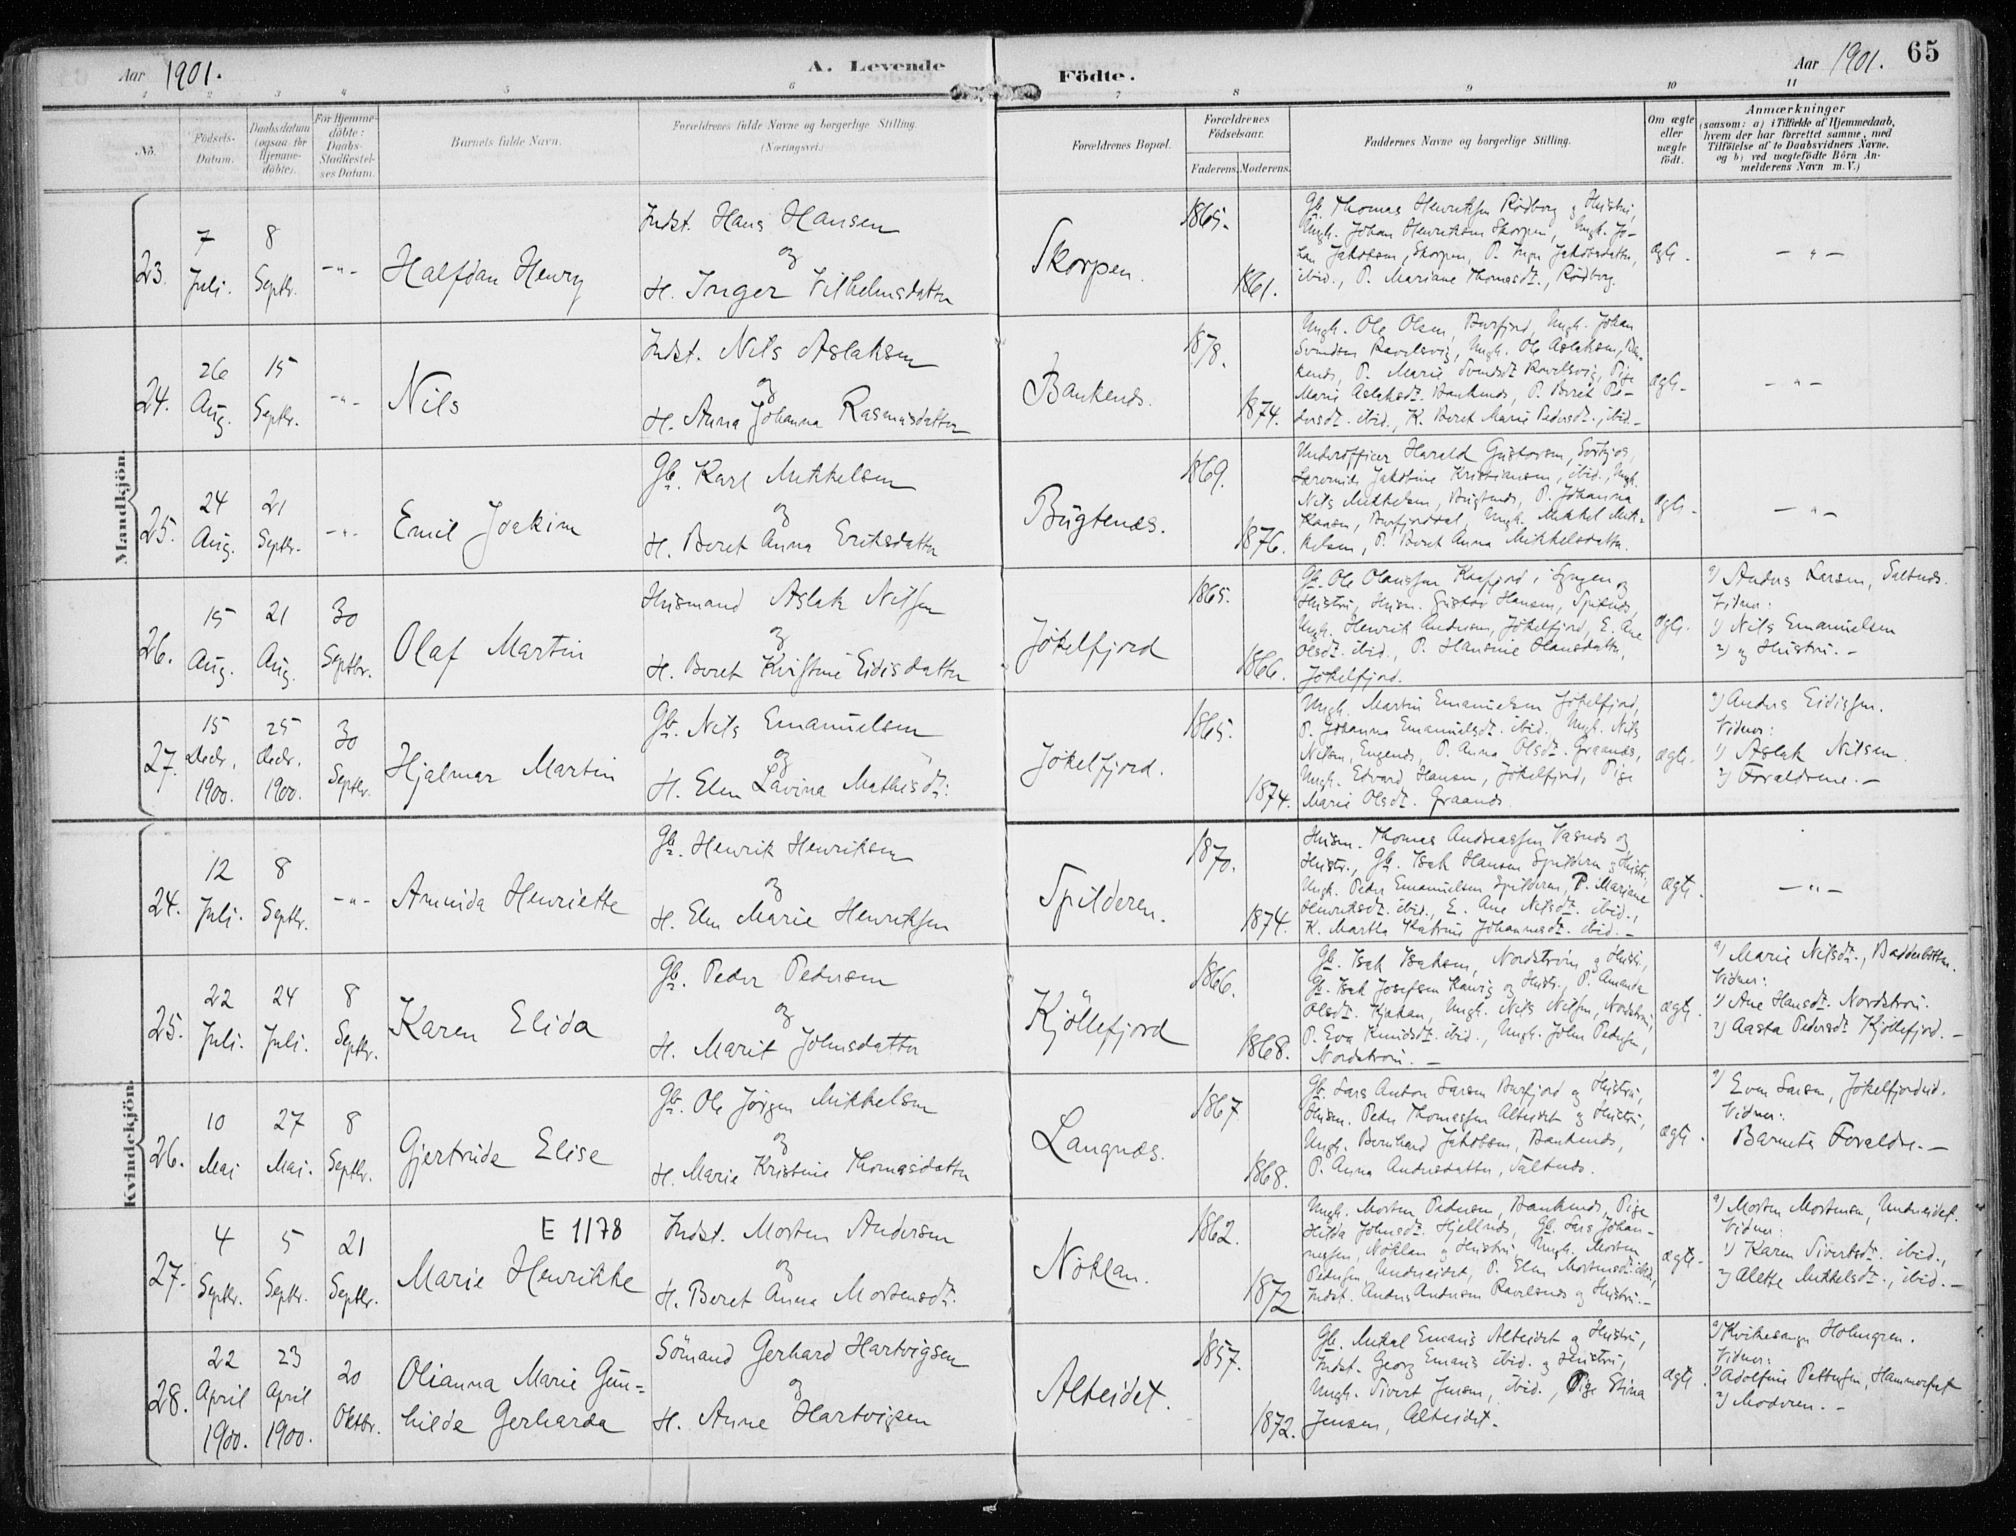 Aar 1901.
A. Levende
Födte.
Aar 1901.
65
1 2 3 4 5 6 7 8 9 10 11
No.
Födsels-
Datum.
Daabsdatum
(ogsaa for
Hjemme-
döbte).
For Hjemme-
döbte:
Daabs-
Stadfæstel-
ses Datum.
Barnets fulde Navn.
Forældrenes fulde Navne og borgerlige Stilling.
(Næringsvei.)
Forældrenes Bopæl.
Forældrenes
Födselsaar.
Faderens. Moderens.
Faddernes Navne og borgerlige Stilling.
Om ægte
eller
uægte
födt.
Anmærkninger
(saasom: a) i Tilfælde af Hjemmedaab,
hvem der har forrettet samme, med
Tilföielse af to Daabsvidners Navne,
og b) ved uægtefödte Börn An-
melderens Navn m. V.)
Mandkjön.
23.
7
Juli.
8
Septbr.
-"-
Halfdan Henry
Indst. Hans Hansen
og
H. Inger Vilhelmsdatter
Skorpen.
1865.
1861.
Gb. Thomas Henriksen Rödberg og Hustru,
Ungk. Johan Henriksen Skorpen, Ungk. Jo-
han Jakobsen, Skorpen, P. Inga Jakobsdatter,
ibid., P. Mariane Thomasdt., Rödberg.
ægte.
- " -
24.
26
Aug.
15
Septbr.
-"-
Nils
Indst. Nils Aslaksen
og
H. Anna Johanna Rasmusdatter
Bankenes.
1878.
1874.
Ungk. Ole Olsen, Burfjord, Ungk. Johan
Svendsen Ravelsvig, Ungk. Ole Aslaksen, Ban-
kenes, P. Marie Svendsdt. Ravelsvig, Pige
Marie Aslaksdt. Bankenes, P. Beret Pe-
dersdt. ibid., K. Beret Marie Pedersdt., ibid. -
ægte -
- " -
25.
24
Aug.
21
Septbr.
-"-
Emil Joakim
Gb. Karl Mikkelsen
og
H. Beret Anna Eriksdatter
Bugtenæs.
1869.
1876.
Underofficer Harald Gustavsen, Sörkjos,
Lærerinde Jakobine Kristiansen, ibid., Ungk.
Nils Mikkelsen, Bugtenes, P. Johanna
Hansen, Burfjorddal, Ungk. Mikkel Mik-
kelsen, P. Beret Anna Mikkelsdatter.
ægte -
- " -
26.
15
Aug.
21
Aug.
30
Septbr.
Olaf Martin
Husmand Aslak Nilsen
og
H. Beret Kristine Eidisdatter
Jökelfjord
1865.
1866.
Gb. Ole Olaussen Kaafjord i Lyngen og
Hustru, Husm. Gustav Hansen, Spitenes,
Ungk. Henrik Andersen, Jökelfjord, E. Ane
Olsdt. ibid., P. Hansine Hansdatter,
Jökelfjord.
ægte.
a) Anders Larsen, Saltnes.
Vidner:
1) Nils Emanuelsen
2) og Hustru. -
27.
15
Decbr.
1900.
25
Decbr.
1900.
30
Septbr.
Hjalmar Martin
Gb. Nils Emanuelsen
og
H. Elen Lavina Mathisdt.
Jökelfjord.
1865.
1874.
Ungk. Martin Emanuelsen Jökelfjord,
P. Johanna Emanuelsdt. ibid. Ungk. Nils
Nilsen, Engenes, P. Anna Olsdt. Graanes,
Ungk. Edvard Hansen, Jökelfjord, Pige
Marie Olsdt. Graanes.
ægte.
a) Anders Eidissen.
Vidner:
1) Aslak Nilsen
2) Forældrene. -
Kvindekjön.
24.
12
Juli.
8
Septbr.
-"-
Arunida Henriette
Gb. Henrik Henriksen
og
H. Elen Marie Henriksen
Spilderen.
1870.
1874.
Husm. Thomas Andreassen Vasnes og
Hustr., Gb. Isak Hansen Spilderen og Hustr.,
Ungk. Peder Emanuelsen Spilderen, P. Mariane
Henriksdt. ibid., E. Ane Nilsdt. ibid.,
K. Martha Katrine Johannesdt. ibid. -
ægte.
- " -
25.
22
Juli.
24
Juli.
8
Septbr.
Karen Elida
Gb. Peder Pedersen
og
H. Marit Johnsdatter
Kjöllefjord
1866.
1868.
Gb. Isak Isaksen, Nordström og Hustr.,
Gb. Isak Josefsen og Hustr., P. Amanda
Olsdt. Ungk. Nils Nilsen, Nordström,
P. Eva Knudsdt. ibid., Ungk. John Pedersen,
Nordström. -
ægte.
a) Marie Nilsdt., Badderbotten.
Vidner:
1) Ane Hansdt. Nordström.
2) Aasta Pedersdt. Kjöllefjord. -
26.
10
Mai
27
Mai.
8
Septbr.
Gjertrude Elise
Gb. Ole Jörgen Mikkelsen
og
H. Marie Kristine Thomasdatter
Langnæs.
1867
1868.
Gb. Lars Anton Larsen Burfjord og Hustru,
Husm. Peder Thomassen Alteidet og Hustru,
Ungk. Bernhard Jakobsen, Bankenes,
P. Anna Andersdatter, Saltnes.
ægte.
a) Even Larsen, Jökelfjordeid.
Vidner:
Barnets Forældre. -
27.
4
Septbr.
5
Septbr.
21
Septbr.
E 1178
Marie Henrikke
Indst. Morten Andersen
og
H. Beret Anna Mortensdt.
Nöklan.
1862.
1872
Ungk. Morten Pedersen, Bankenes, Pige
Hilda Johnsdt. Hjellnes, Gb. Lars Johan-
nessen, Nöklan og Hustru, Ungk. Morten
Pedersen, Undereidet, P. Elen Mortensdt. ibid.,
Indst. Anders Andersen Ravelsnes og Hustru. -
ægte -
a) Morten Mortensen, Undereidet.
Vidner:
1) Karen Sivertsdt. ibid.,
2) Alette Mikkelsdt., ibid. -
28.
22
April
1900.
23
April
1900.
20
Oktbr.
Olianna Marie Gun=
hilda Gerharda
Sömand Gerhard Hartvigsen
og
H. Anne Hartvigsen
Alteidet.
1857.
1872.
Gb. Mikal Emaus Alteidet og Hustru,
Indst. Georg Emaus ibid. og Hustru,
Ungk. Sivert Jensen, ibid., Pige Stina
Jensen, Alteidet. -
ægte.
a) Holmgren.
Vidner:
1) Adolfine Pettersen, Hammerfest
2) Moderen. -